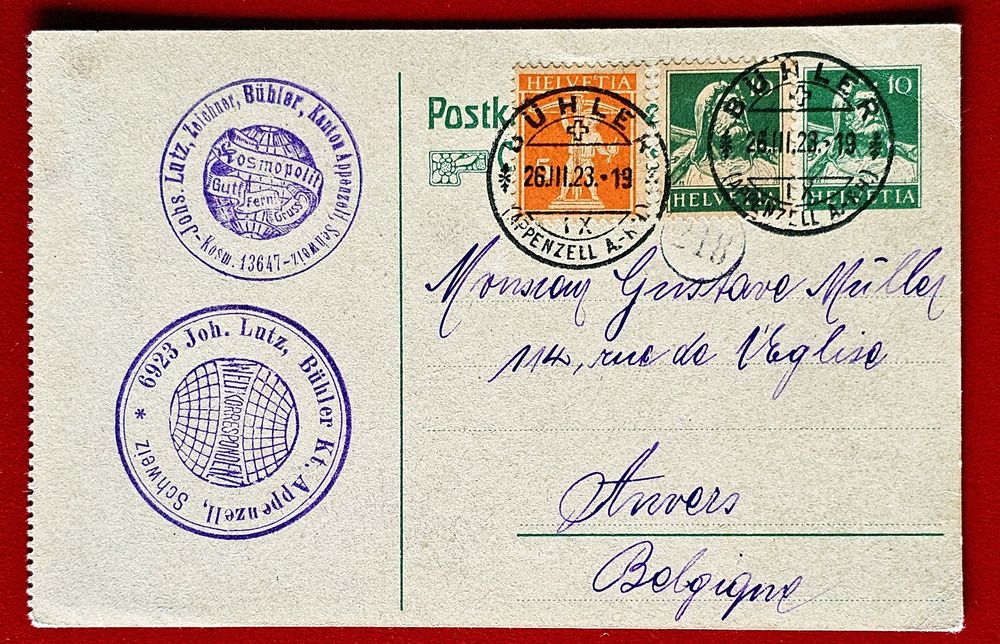 Johs. Lutz, Zeichner, Bühler, Kanton Appenzell, Schweiz-
-Kosm. 13647-
Kosmopolit
Gut Fern Gruss
* 6923 Joh. Lutz, Bühler Kt. Appenzell, Schweiz
WELTKORRESPONDENT
Postk
HELVETIA
5
BÜHLER
26.III.23.-19
IX
(APPENZELL A.-RH.)
HELVETIA
BÜHLER
26.III.23.-19
IX
(APPENZELL A.-RH.)
10
HELVETIA
218
Monsieur Gustave Müller
114, rue de l'Eglise
Anvers
Belgique